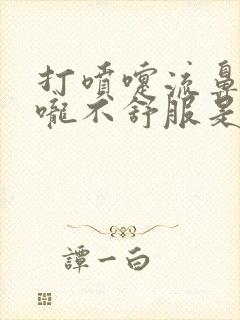 打喷嚏流鼻
咙不舒服是
谭一白